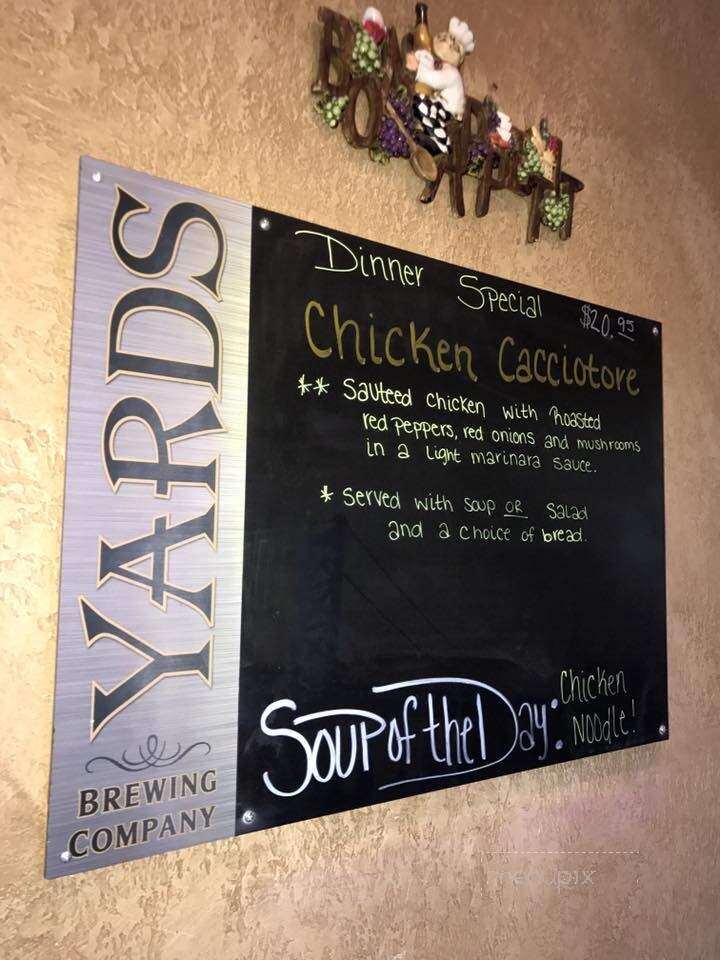 BON
APPETIT
YARDS
BREWING
COMPANY
Dinner Special
$20.95
Chicken Cacciotore
** Sauteed chicken with Roasted
red peppers, red onions and mushrooms
in a Light marinara sauce.
* Served with soup OR salad
and a choice of bread.
Soup of the Day:
Chicken
Noodle!
menupix